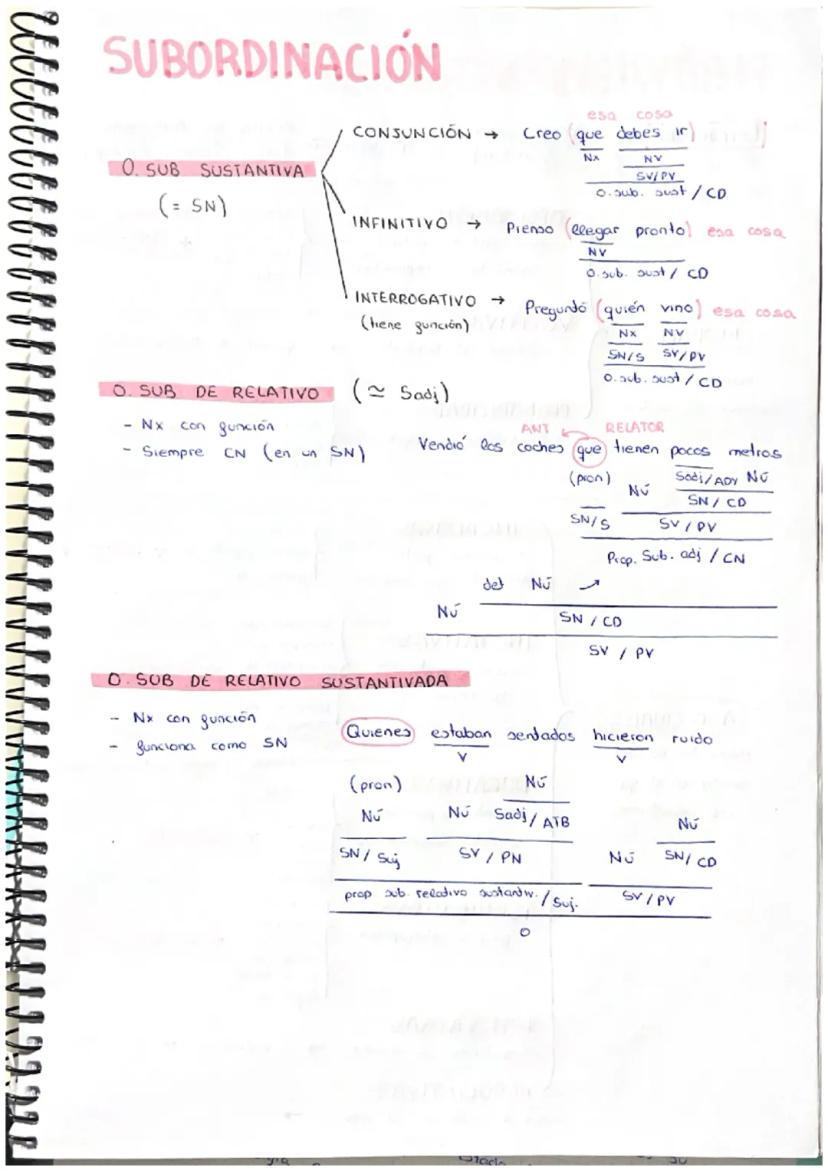 SUBORDINACIÓN
O. SUB SUSTANTIVA
(= SN)
CONJUNCIÓN → Creo (que debes ir)
esa cosa
Nx NV
SV/PV
O.sub. sust / CD
INFINITIVO → Pienso (llegar pronto) esa cosa
NV
O.sub. sust / CD
INTERROGATIVO → Preguntó (quién vino) esa cosa
(tiene función)
Nx NV
SN/S SV/PV
O.sub. sust / CD
O. SUB DE RELATIVO (≃ Sadj)
- Nx con función
- Siempre CN (en un SN)
ANT RELATOR
Vendió los coches que tienen pocos metros
(pron) Nú Sadj/ADY Nú
SN / CD
SN/S SV / PV
Prop. Sub. adj / CN
det Nú
Nú SN / CD
SV / PV
O. SUB DE RELATIVO SUSTANTIVADA
- Nx con función
- funciona como SN
Quienes estaban sentados hicieron ruido
V V
(pron) Nú
Nú Nú Sadj / ATB Nú
SN / Suj SV / PN Nú SN / CD
prop sub. relativo sustantiv. / Suj. SV / PV
O